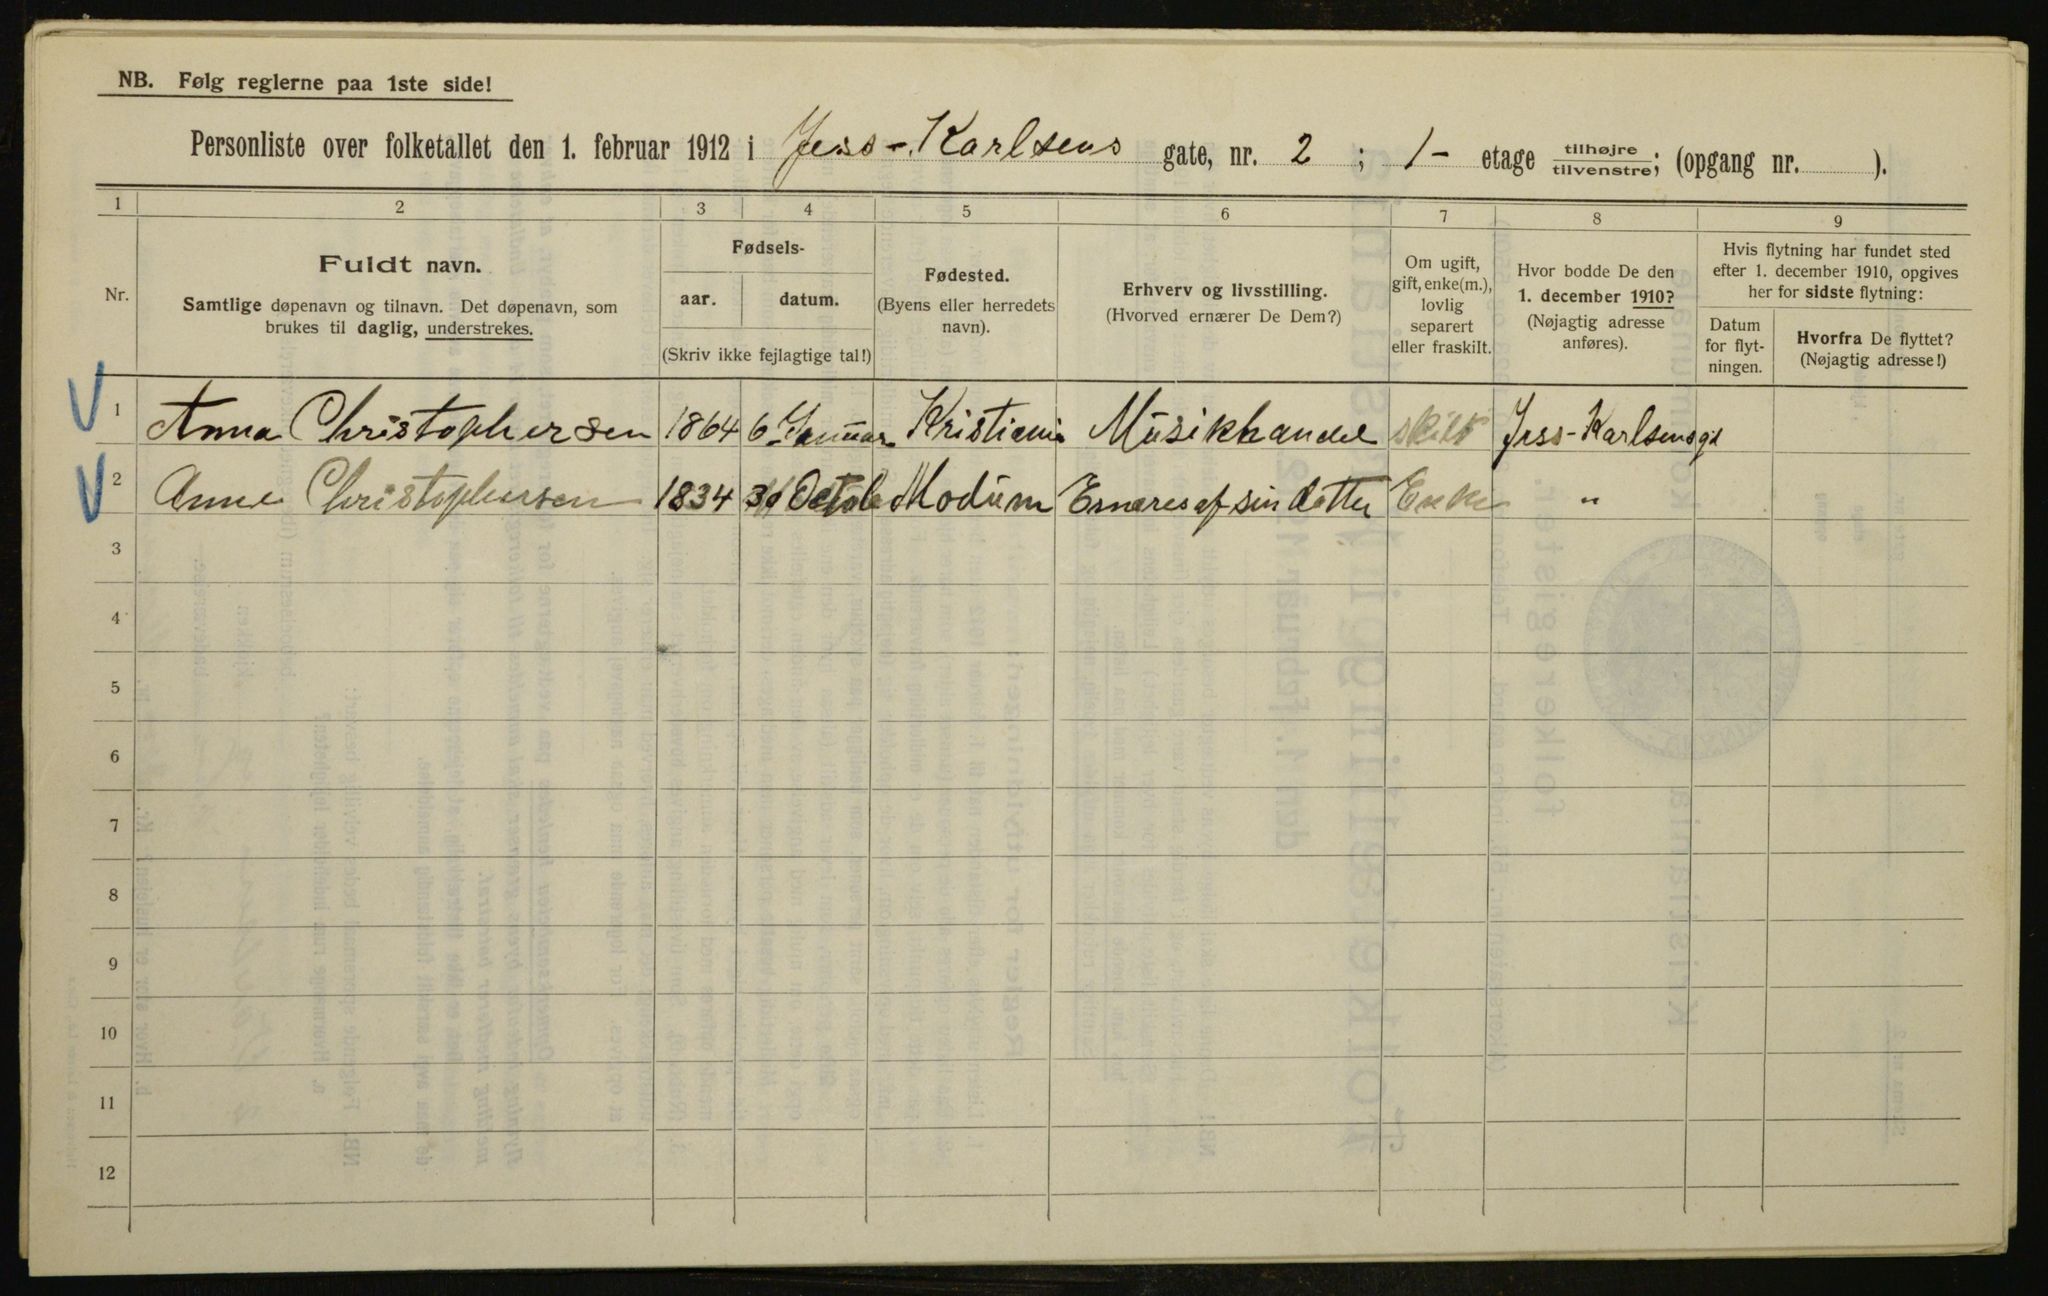 NB. Følg reglerne paa 1ste side!
Personliste over folketallet den 1. februar 1912 i Jess-Karlsens gate, nr. 2 ; 1- etage tilhøjre/tilvenstre; (opgang nr. ).
1 2 3 4 5 6 7 8 9
Nr.
Fuldt navn.
Samtlige døpenavn og tilnavn. Det døpenavn, som
brukes til daglig, understrekes.
Fødsels-
aar. datum.
(Skriv ikke fejlagtige tal!)
Fødested.
(Byens eller herredets
navn).
Erhverv og livsstilling.
(Hvorved ernærer De Dem?)
Om ugift,
gift, enke(m.),
lovlig
separert
eller fraskilt.
Hvor bodde De den
1. december 1910?
(Nøjagtig adresse
anføres).
Hvis flytning har fundet sted
efter 1. december 1910, opgives
her for sidste flytning:
Datum
for flyt-
ningen.
Hvorfra De flyttet?
(Nøjagtig adresse!)
1 Anna Christophersen 1864 6 Januar Kristiania Musikhandel skilt Jess-Karlsensgt
2 Anne Christophersen 1834 Octob Modum Ernæres af sin datter Enke "
3
4
5
6
7
8
9
10
11
12